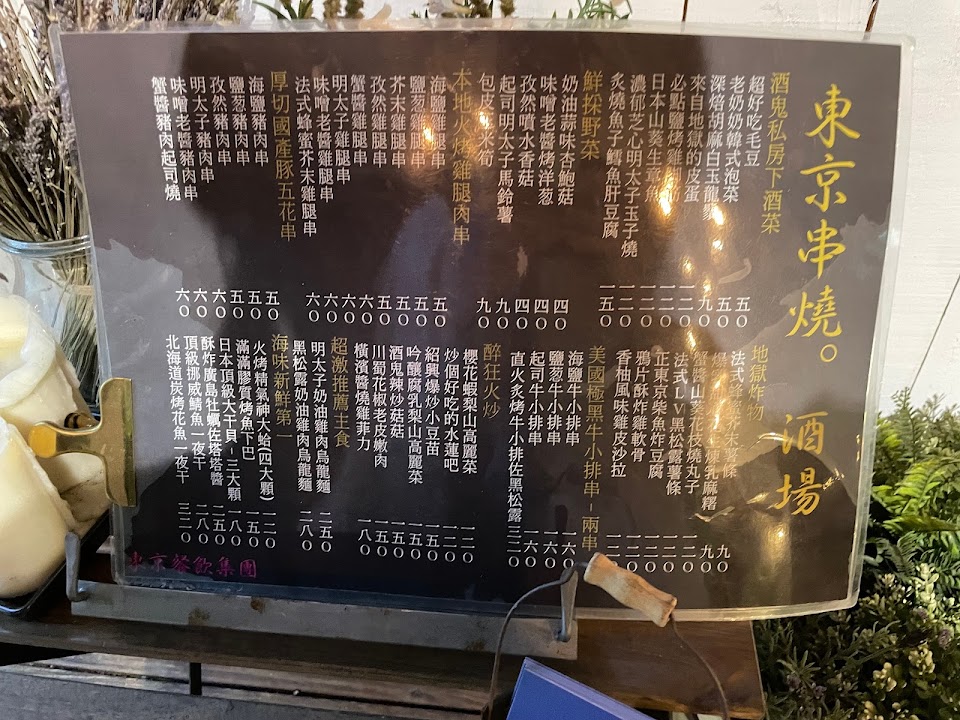 東京串燒。酒場
酒鬼私房下酒菜
超好吃毛豆 五〇
老奶奶韓式泡菜 五〇
深焙胡麻白玉龍鬚 九〇
來自地獄的皮蛋
必點鹽烤雞
日本山葵生章魚
濃郁芝心明太子玉子燒 一二〇
炙燒魚子鱈魚肝豆腐 一五〇
鮮採野菜
奶油蒜味杏鮑菇 四〇
味噌老醬烤洋葱 四〇
孜然噴水香菇 四〇
起司明太子馬鈴薯 九〇
包皮玉米筍 九〇
本地火烤雞腿肉串
海鹽雞腿串 五〇
鹽葱雞腿串 五〇
芥末雞腿串 五〇
孜然雞腿串 五〇
蟹醬雞腿串 六〇
明太子雞腿串 六〇
味噌老醬雞腿串 六〇
法式蜂蜜芥末雞腿串 六〇
厚切國產豚五花串
海鹽豬肉串 五〇
鹽葱豬肉串 五〇
孜然豬肉串 五〇
明太子豬肉串 六〇
味噌老醬豬肉串 六〇
蟹醬豬肉起司燒 六〇
地獄炸物
法式蜂蜜芥末薯條 九〇
乳麻糬 九〇
蟹醬山葵花枝燒丸子
法式LV黑松露薯條 一二〇
正東京柴魚炸豆腐 一二〇
鴉片酥炸雞軟骨 一二〇
香柚風味雞皮沙拉 一二〇
美國極黑牛小排串-兩串
海鹽牛小排串 一六〇
鹽葱牛小排串 一六〇
起司牛小排串 一六〇
直火炙烤牛小排佐黑松露 三二〇
醉狂火炒
櫻花蝦梨山高麗菜 一二〇
炒個好吃的水蓮吧 一二〇
紹興爆炒小豆苗 一五〇
吟釀腐乳梨山高麗菜 一五〇
酒鬼辣炒菇菇 一五〇
川蜀花椒老皮嫩肉 一五〇
橫濱醬燒雞菲力 一八〇
超激推薦主食
明太子奶油雞肉烏龍麵 二五〇
黑松露奶油雞肉烏龍麵 二八〇
海味新鮮第一
火烤精氣神大蛤(四大顆) 一二〇
滿滿膠質烤魚下巴 一五〇
日本頂級大干貝-三大顆 一八〇
酥炸廣島牡蠣佐塔塔醬 二五〇
頂級挪威鯖魚一夜干 二八〇
北海道炭烤花魚一夜干 三二〇
東京餐飲集團